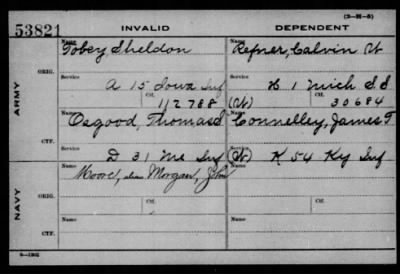 (3-H-5)
53821 INVALID DEPENDENT
Name Name
Tobey Sheldon Refner, Calvin W
ORIG.
Service Service
A 15 Iowa Inf H 1 Mich S.S
Ctf. Ctf.
112788 (W) 30684
ARMY
Name Name
Osgood, Thomas S Connelley, James T
CTF.
Service Service
D 31 Me Inf (W) K 54 Ky Inf
Name Name
Moore, alias Morgan, John
ORIG.
NAVY
Name Name
CTF.